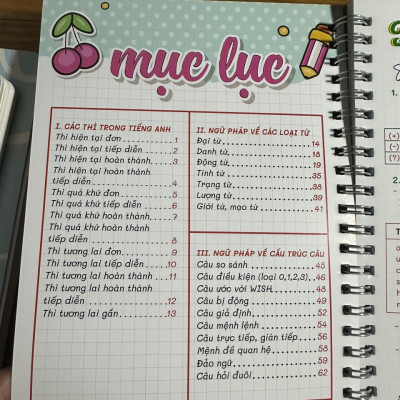 mục lục
I. CÁC THÌ TRONG TIẾNG ANH
Thì hiện tại đơn..............1
Thì hiện tại tiếp diễn......2
Thì hiện tại hoàn thành....3
Thì hiện tại hoàn thành
tiếp diễn......................4
Thì quá khứ đơn.............5
Thì quá khứ tiếp diễn......6
Thì quá khứ hoàn thành...7
Thì quá khứ hoàn thành
tiếp diễn......................8
Thì tương lai đơn............9
Thì tương lai tiếp diễn....10
Thì tương lai hoàn thành..11
Thì tương lai hoàn thành
tiếp diễn.....................12
Thì tương lai gần...........13
II. NGỮ PHÁP VỀ CÁC LOẠI TỪ
Đại từ.......................14
Danh từ.....................18
Động từ.....................19
Tính từ......................35
Trạng từ....................38
Lượng từ...................39
Giới từ, mạo từ............41
III. NGỮ PHÁP VỀ CẤU TRÚC CÂU
Câu so sánh................45
Câu điều kiện (loại 0,1,2,3)..46
Câu ước với WISH.........48
Câu bị động................49
Câu giả định...............52
Câu mệnh lệnh.............54
Câu trực tiếp, gián tiếp....56
Mệnh đề quan hệ..........58
Đảo ngữ....................59
Câu hỏi đuôi...............62
1.
(+)
(-)
(?)
2.